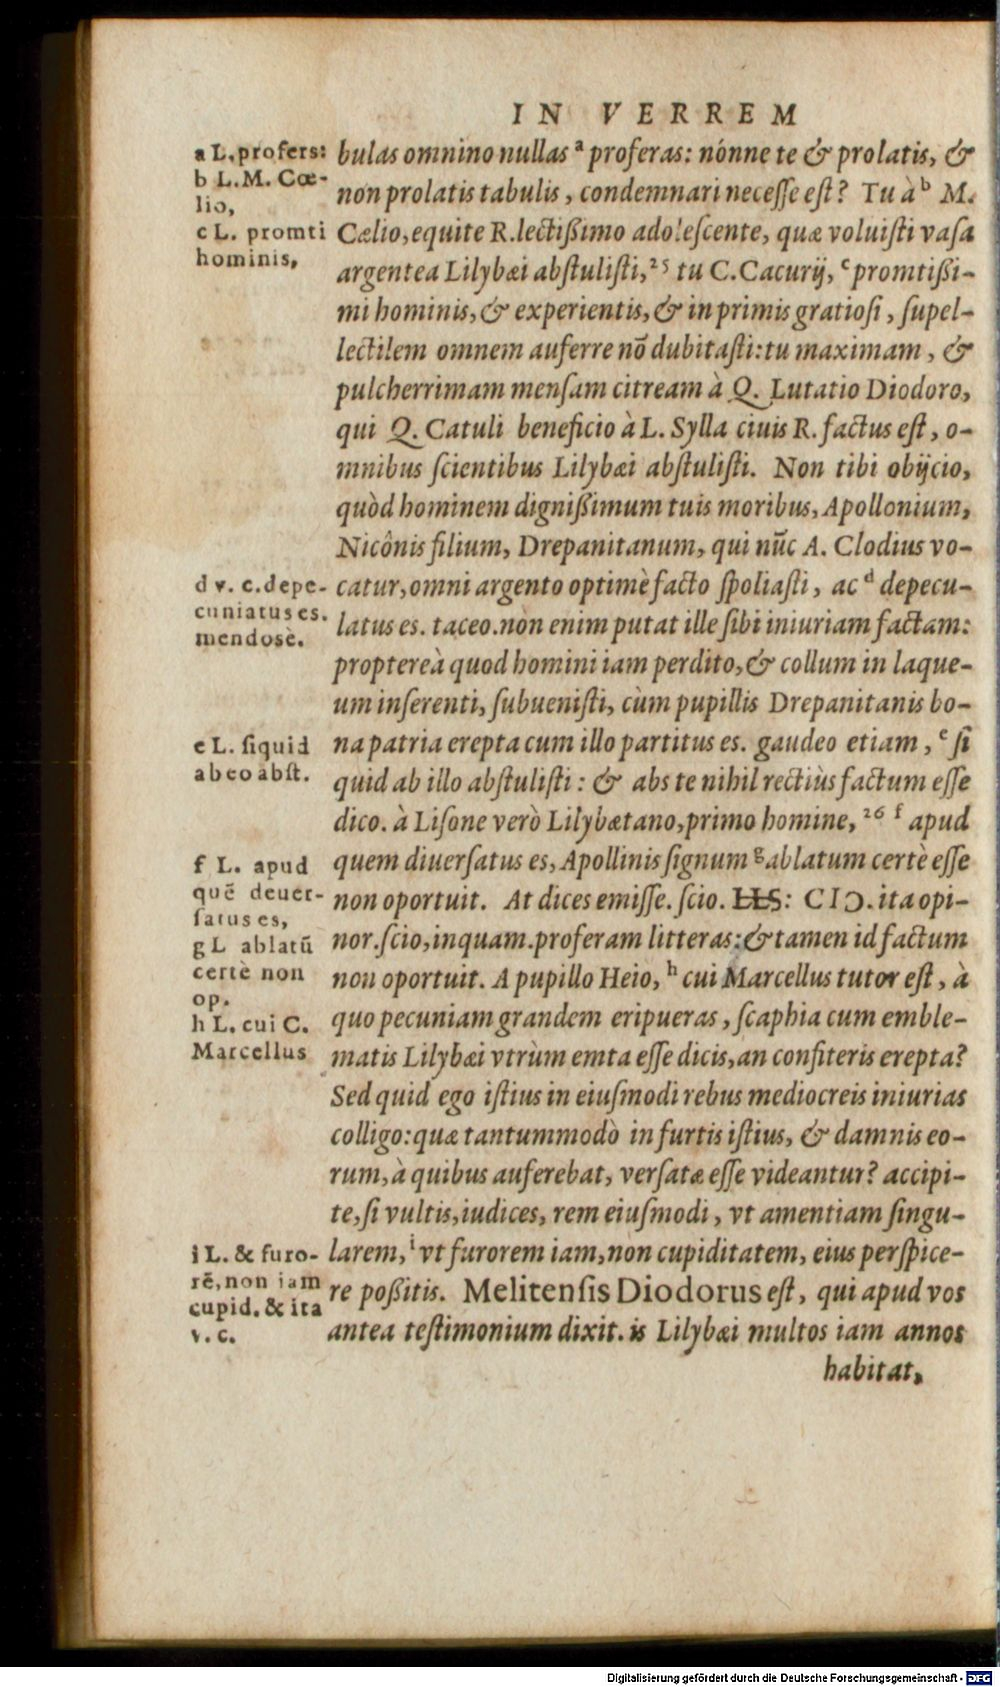 IN VERREM
a L. profers:
b L.M. Cœ-
lio,
c L. promti
hominis,
bulas omnino nullas ª proferas: nónne te & prolatis, &
non prolatis tabulis, condemnari necesse est? Tu à ᵇ M.
Cælio, equite R. lectißimo adolescente, quæ voluisti vasa
argentea Lilybæi abstulisti, ²⁵ tu C. Cacurij, ᶜ promtißi-
mi hominis, & experientis, & in primis gratiosi, supel-
lectilem omnem auferre nō dubitasti: tu maximam, &
pulcherrimam mensam citream à Q. Lutatio Diodoro,
qui Q. Catuli beneficio à L. Sylla ciuis R. factus est, o-
mnibus scientibus Lilybæi abstulisti. Non tibi obijcio,
quòd hominem dignißimum tuis moribus, Apollonium,
Nicônis filium, Drepanitanum, qui nūc A. Clodius vo-
d v. c. depe-
cuniatus es.
mendosè.
catur, omni argento optimè facto spoliasti, ac ᵈ depecu-
latus es. taceo. nòn enim putat ille sibi iniuriam factam:
proptereà quod homini iam perdito, & collum in laque-
um inserenti, subuenisti, cùm pupillis Drepanitanis bo-
e L. siquid
ab eo abst.
na patria erepta cum illo partitus es. gaudeo etiam, ᵉ si
quid ab illo abstulisti: & abs te nihil rectiùs factum esse
dico. à Lisone verò Lilybætano, primo homine, ²⁶ ᶠ apud
f L. apud
quē deuer-
satus es,
g L ablatū
certè non
op.
h L. cui C.
Marcellus
quem diuersatus es, Apollinis signum ᵍ ablatum certè esse
non oportuit. At dices emisse. scio. HS: CIↃ. ita opi-
nor. scio, inquam. proferam litteras: & tamen id factum
non oportuit. A pupillo Heio, ʰ cui Marcellus tutor est, à
quo pecuniam grandem eripueras, scaphia cum emble-
matis Lilybæi vtrùm emta esse dicis, an confiteris erepta?
Sed quid ego istius in eiusmodi rebus mediocreis iniurias
colligo: quæ tantummodò in furtis istius, & damnis eo-
rum, à quibus auferebat, versatæ esse videantur? accipi-
te, si vultis, iudices, rem eiusmodi, vt amentiam singu-
i L. & furo-
rē, non iam
cupid. & ita
v. c.
larem, ⁱ vt furorem iam, non cupiditatem, eius perspice-
re poßitis. Melitensis Diodorus est, qui apud vos
antea testimonium dixit. is Lilybæi multos iam annos
habitat,
Digitalisierung gefördert durch die Deutsche Forschungsgemeinschaft - DFG